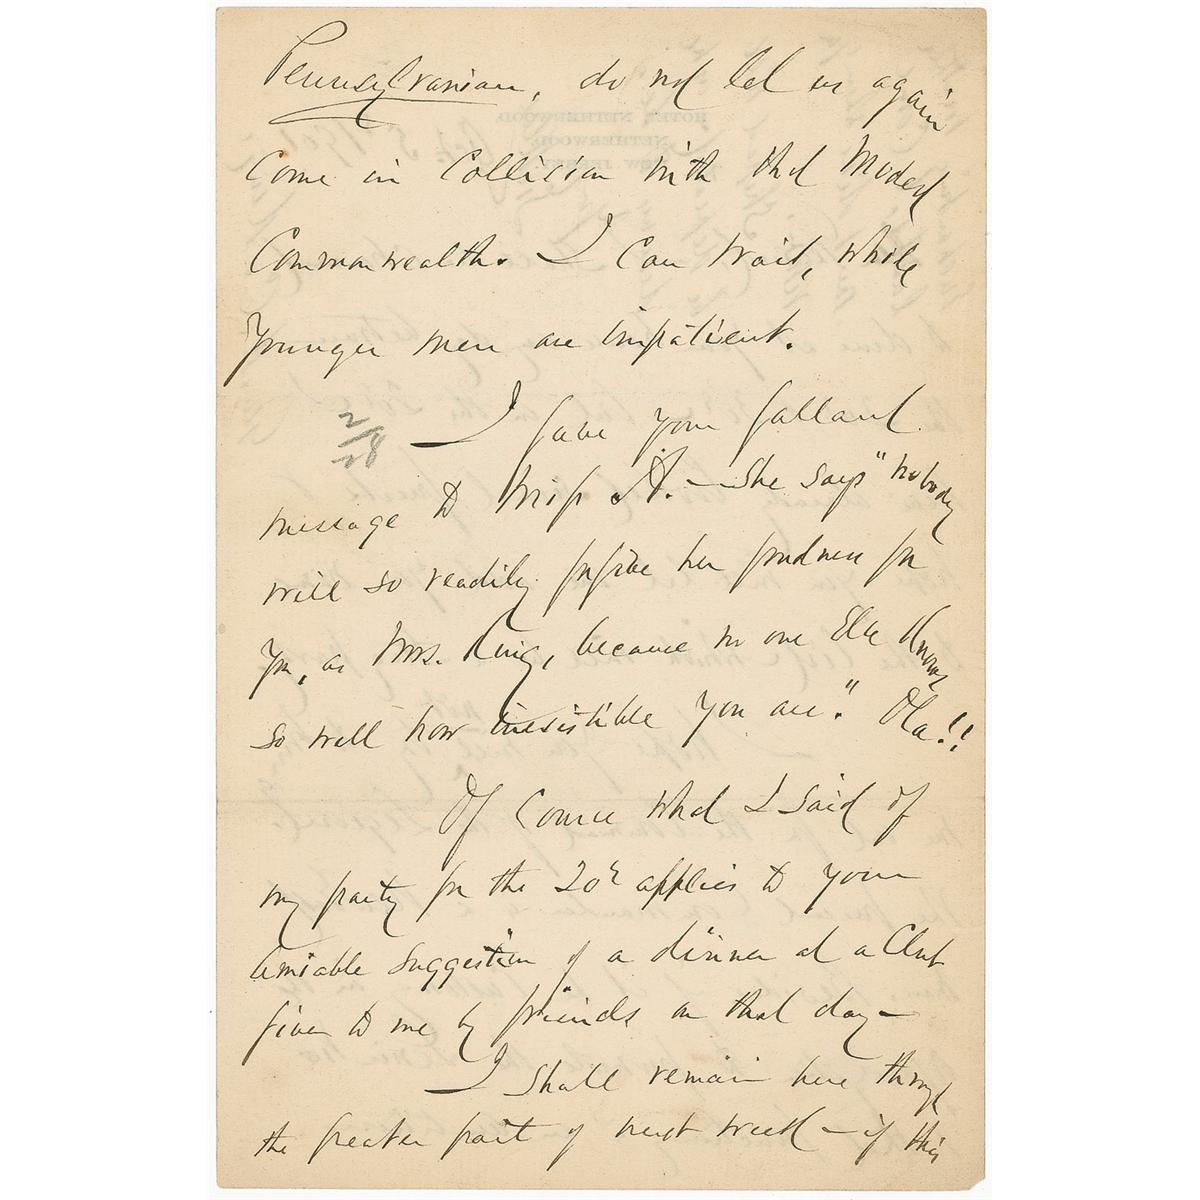 Pennsylvanian, do not let us again
come in collision with that Modest
Commonwealth. I can wait, while
younger men are impatient.
2/28
I gave your gallant
message to Miss A. — She says "nobody
will so readily forgive her fondness for
you, as Mrs. King, because no one Else knows
so well how irresistible you are." Ola!!
Of course what I said of
my party for the 20th applies to your
amiable suggestion of a dinner at a Club
given to me by friends on that day —
I shall remain here through
the greater part of next week — if this
HOTEL NETHERWOOD,
NETHERWOOD,
NEW JERSEY.